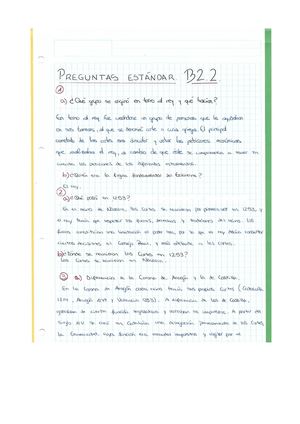 PREGUNTAS ESTÁNDAR B2.2
①
a) ¿Qué grupo se originó en torno al rey y qué hacían?
En torno al rey fue creándose un grupo de personas que le ayudaban
en sus tareas, al que se denominó corte o curia regia. El principal
cometido de las cortes era discutir y votar las peticiones económicas
que realizaba el rey, a cambio de que este se comprometiera a tener en
cuenta las peticiones de los diferentes estamentos.
b) ¿Quién era la figura fundamental de gobierno?
El rey.
②
a) ¿Qué pasó en 1253?
En el reino de Navarra, las Cortes se reunieron por primera vez en 1253, y
el rey tenía que respetar los fueros, derechos y tradiciones del reino. Los
fueros constituían una limitación al poder real, por lo que el rey debía consultar
ciertas decisiones al Consejo Real, y más adelante a las Cortes.
b) ¿Dónde se reunieron las Cortes en 1253?
Las Cortes se reunieron en Navarra.
③ a) Diferencias de la Corona de Aragón y la de Castilla.
En la Corona de Aragón cada reino tenía sus propias Cortes (Cataluña
1214, Aragón 1247 y Valencia 1283). A diferencia de las de Castilla,
ejercían de cierta función legislativa y votaban los impuestos. A partir del
siglo XIV se creó en Cataluña una delegación permanente de las Cortes,
la Generalidad, cuya función era recaudar impuestos y velar por el